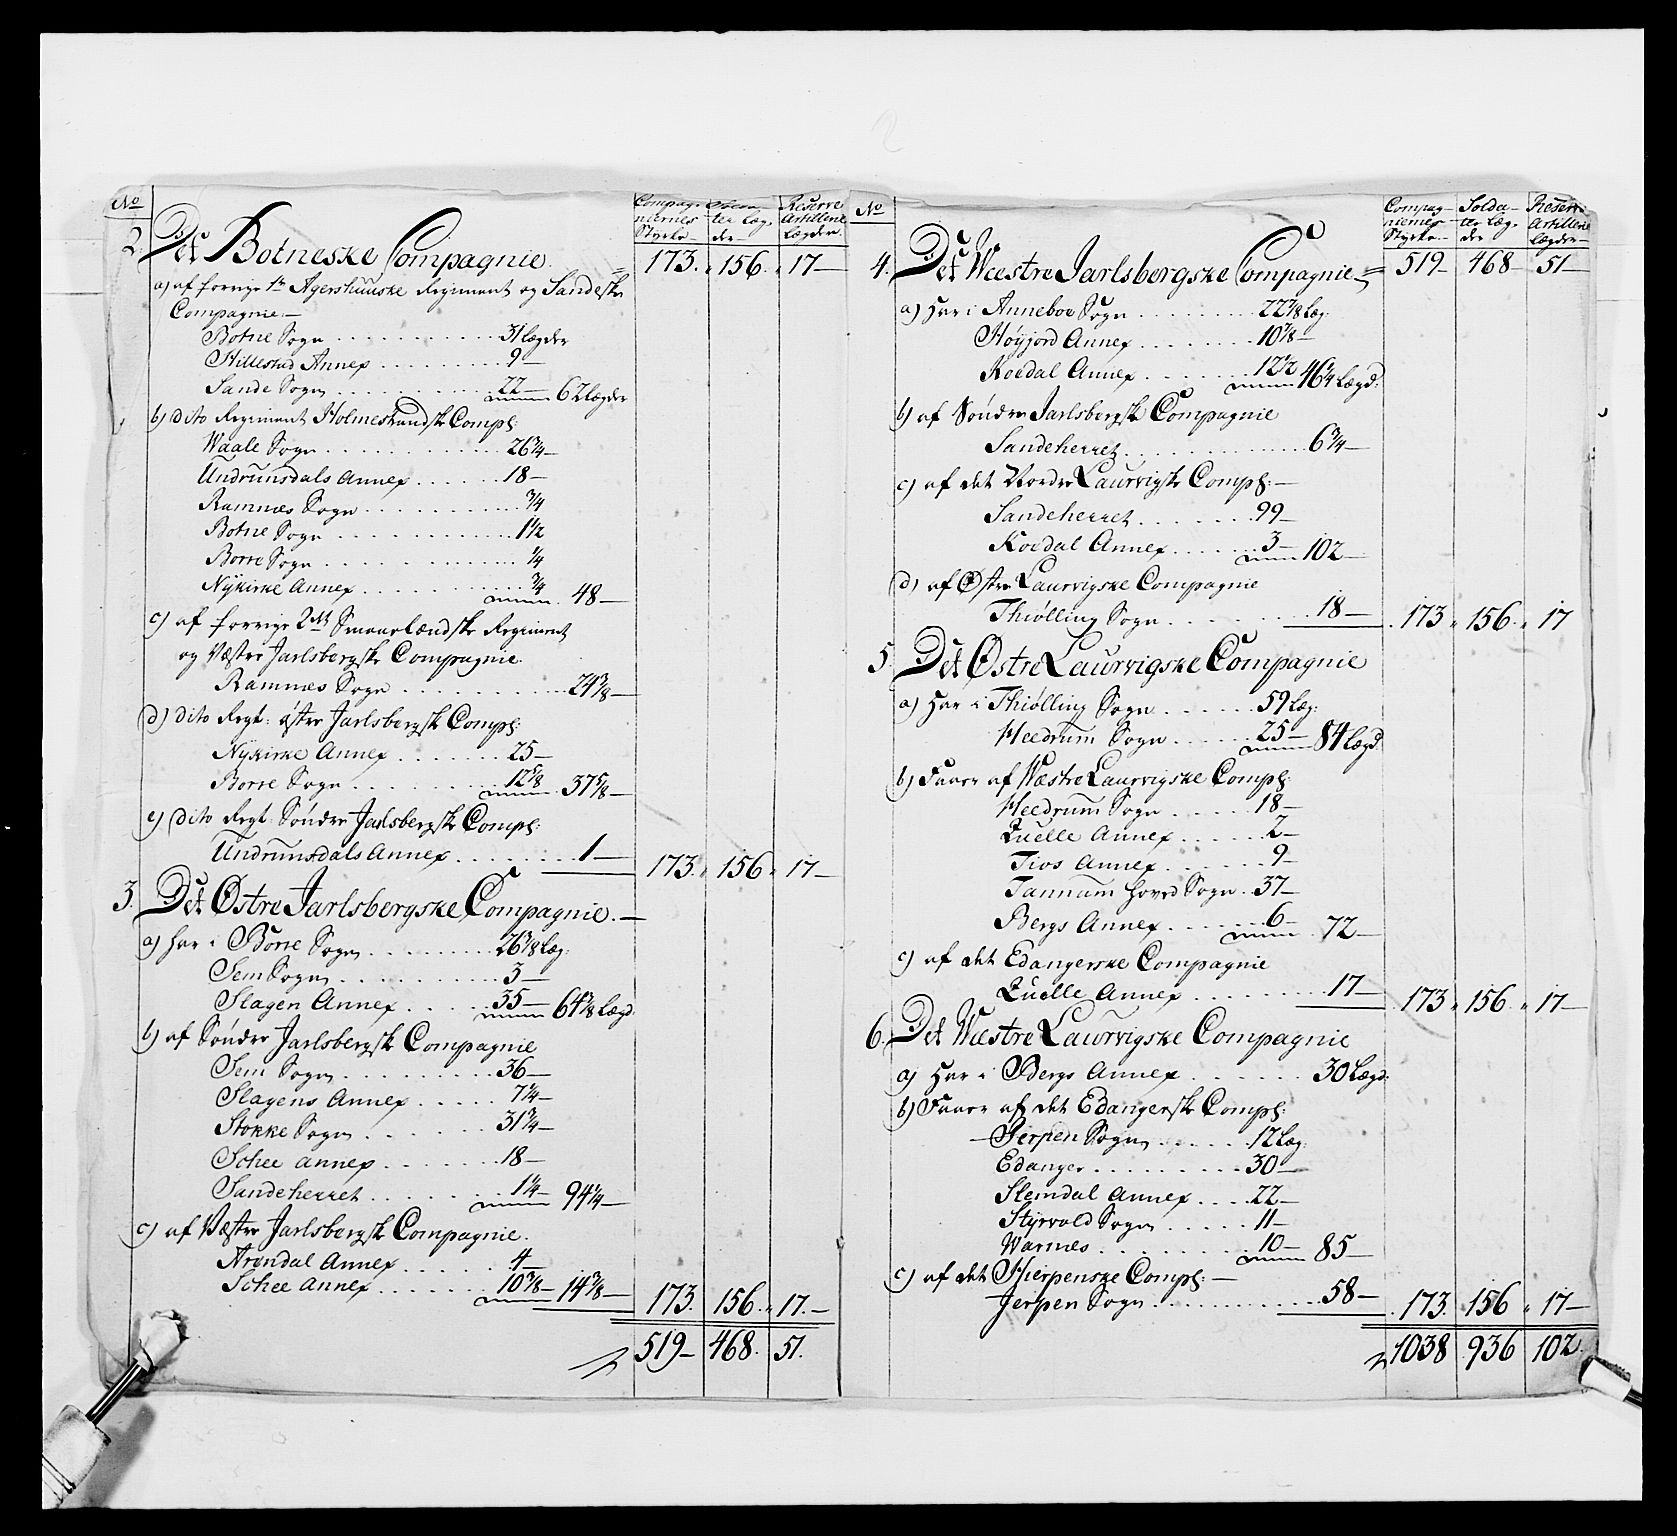 No
Compag-
niernes
Styrke
Solda-
ter Læg-
der
Reserve
Artillerie
Lægder
2. Det Botneske Compagnie.
173. 156. 17
a) af forrige 1te Agershuuske Regiment og Sandeske
Compagnie
Botne Sogn 31 Lægder
Hillestad Annex 9
Sande Sogn 22 62 Lægder
b) dito Regiment Holmestrandske Comp:
Waale Sogn 26 3/4
Undrunsdals Annex 18
Ramnæs Sogn 3/4
Botne Sogn 1 1/2
Borre Sogn 1/4
Nykirke Annex 3/4 48
c) af forrige 2det Smaaelændske Regiment
og Væstre Jarlsbergske Compagnie
Ramnæs Sogn 24 3/8
d) dito Regt: østre Jarlsbergsk Comp:
Nykirke Annex 25
Borre Sogn 12 5/8 37 5/8
e) dito Regt: Søndre Jarlsbergske Comp:
Undrunsdals Annex 1 173. 156 17
3. Det Østre Jarlsbergske Compagnie.
a) har i Borre Sogn 26 3/8 Læg:
Sem Sogn 3
Slagen Annex 35 64 3/8 Lægd
b) af Søndre Jarlsbergsk Compagnie
Sem Sogn 36
Slagens Annex 7 1/4
Stokke Sogn 31 3/4
Schee Annex 18
Sandeherret 1 1/4 94 1/4
c) af Væstre Jarlsbergsk Compagnie.
Arendal Annex 4
Schee Annex 10 3/8 14 3/8 173. 156. 17.
519 468. 51.
No
Compag-
niernes
Styrke
Solda-
ter Læg-
der
Reserve
Artillerie
Lægder
519 468 51
4. Det Wæstre Jarlsbergske Compagnie
a) har i Anneboe Sogn 22 7/8 Læg:
Høyjord Annex 10 7/8
Koedal Annex 12 1/2 46 1/4 Lægd:
b) af Søndre Jarlsbergsk Compagnie
Sandeherret 6 3/4
c) af det Nordre Laurvigske Comp:
Sandeherret 99
Koedal Annex 3 102
d) af Østre Laurvigske Compagnie
Thiølling Sogn 18 173 156 17
5. Det Østre Laurvigske Compagnie
a) har i Thiølling Sogn 59 Læg:
Heedrum Sogn 25 84 Lægd.
b) Faaer af Wæstre Laurvigske Comp:
Heedrum Sogn 18
Quelle Annex 2
Tios Annex 9
Tannum hoved Sogn 37
Bergs Annex 6 72
c) af det Edangerske Compagnie
Quelle Annex 17 173 156 17
6. Det Wæstre Laurvigske Compagnie
a) har i Bergs Annex 30 Lægd:
b) Faaer af det Edangersk Comp:
Gerpen Sogn 12 Læg:
Edanger 30
Slemdal Annex 22
Styrvold Sogn 11
Warnes 10 85
c) af det Hierpenske Comp:
Jerpen Sogn 58 173. 156 17
1038 936 102.